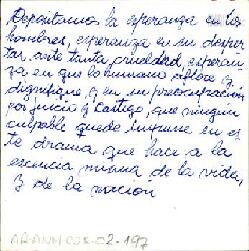 Depositamos la esperanza en los
hombres, esperanza en su desper-
tar, ante tanta crueldad, esperan-
za en que lo humano aflore y
dignifique, y en su preocupación
por juicio y castigo, que ningún
culpable quede impune en es-
te drama que hace a la
esencia misma de la vida,
y de la nación
AR-ANM-CDX-02-197